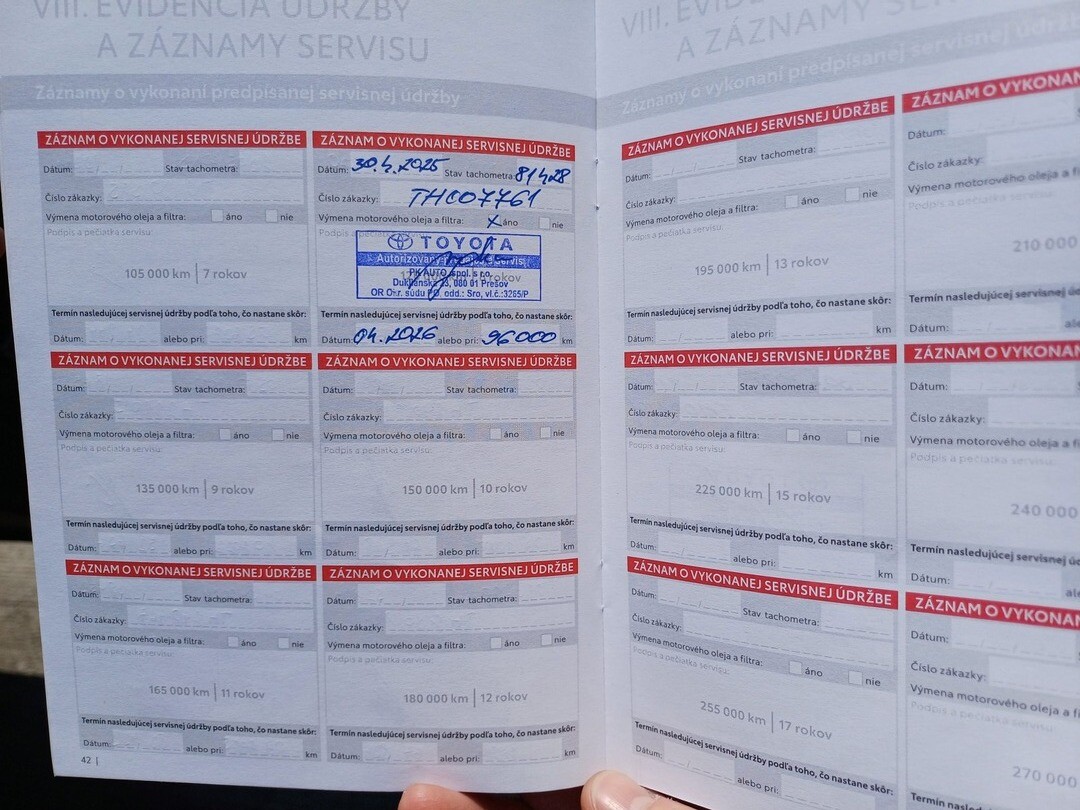 VIII. EVIDENCIA ÚDRŽBY
A ZÁZNAMY SERVISU
Záznamy o vykonaní predpísanej servisnej údržby
ZÁZNAM O VYKONANEJ SERVISNEJ ÚDRŽBE
Dátum: Stav tachometra:
Číslo zákazky:
Výmena motorového oleja a filtra: áno nie
Podpis a pečiatka servisu:
105 000 km | 7 rokov
Termín nasledujúcej servisnej údržby podľa toho, čo nastane skôr:
Dátum: alebo pri: km
ZÁZNAM O VYKONANEJ SERVISNEJ ÚDRŽBE
Dátum: 30.4.2025 Stav tachometra: 81428
Číslo zákazky: THC07761
Výmena motorového oleja a filtra: X áno nie
Podpis a
TOYOTA
Autorizovaný servis
PK AUTO spol. s r.o.
Duklianska 13, 080 01 Prešov
OR Okr. súdu PO, odd.: Sro, vl.č.:3265/P
rokov
Termín nasledujúcej servisnej údržby podľa toho, čo nastane skôr:
Dátum: 04.2026 alebo pri: 96000 km
ZÁZNAM O VYKONANEJ SERVISNEJ ÚDRŽBE
Dátum: Stav tachometra:
Číslo zákazky:
Výmena motorového oleja a filtra: áno nie
Podpis a pečiatka servisu:
135 000 km | 9 rokov
Termín nasledujúcej servisnej údržby podľa toho, čo nastane skôr:
Dátum: alebo pri: km
ZÁZNAM O VYKONANEJ SERVISNEJ ÚDRŽBE
Dátum: Stav tachometra:
Číslo zákazky:
Výmena motorového oleja a filtra: áno nie
Podpis a pečiatka servisu:
150 000 km | 10 rokov
Termín nasledujúcej servisnej údržby podľa toho, čo nastane skôr:
Dátum: alebo pri: km
ZÁZNAM O VYKONANEJ SERVISNEJ ÚDRŽBE
Dátum: Stav tachometra:
Číslo zákazky:
Výmena motorového oleja a filtra: áno nie
Podpis a pečiatka servisu:
165 000 km | 11 rokov
Termín nasledujúcej servisnej údržby podľa toho, čo nastane skôr:
Dátum: alebo pri: km
ZÁZNAM O VYKONANEJ SERVISNEJ ÚDRŽBE
Dátum: Stav tachometra:
Číslo zákazky:
Výmena motorového oleja a filtra: áno nie
Podpis a pečiatka servisu:
180 000 km | 12 rokov
Termín nasledujúcej servisnej údržby podľa toho, čo nastane skôr:
Dátum: alebo pri: km
42 |
VIII. EVIDENCIA
A ZÁZNAMY SE
Záznamy o vykonaní predpísanej servisnej údržb
ZÁZNAM O VYKONANEJ SERVISNEJ ÚDRŽBE
Dátum: Stav tachometra:
Číslo zákazky:
Výmena motorového oleja a filtra: áno nie
Podpis a pečiatka servisu:
195 000 km | 13 rokov
Termín nasledujúcej servisnej údržby podľa toho, čo nastane skôr:
Dátum: alebo pri: km
ZÁZNAM O VYKONAN
Dátum:
Číslo zákazky:
Výmena motorového oleja a fi
Podpis a pečiatka servisu:
210 000
Termín nasledujúcej servisnej úd
Dátum: al
ZÁZNAM O VYKONANEJ SERVISNEJ ÚDRŽBE
Dátum: Stav tachometra:
Číslo zákazky:
Výmena motorového oleja a filtra: áno nie
Podpis a pečiatka servisu:
225 000 km | 15 rokov
Termín nasledujúcej servisnej údržby podľa toho, čo nastane skôr:
Dátum: alebo pri: km
ZÁZNAM O VYKONAN
Dátum:
Číslo zákazky:
Výmena motorového oleja a f
Podpis a pečiatka servisu:
240 000
Termín nasledujúcej servisnej úd
Dátum: ale
ZÁZNAM O VYKONANEJ SERVISNEJ ÚDRŽBE
Dátum: Stav tachometra:
Číslo zákazky:
Výmena motorového oleja a filtra: áno nie
Podpis a pečiatka servisu:
255 000 km | 17 rokov
Termín nasledujúcej servisnej údržby podľa toho, čo nastane skôr:
Dátum: alebo pri: km
ZÁZNAM O VYKON
Dátum:
Číslo zákazky:
Výmena motorového oleja
Podpis a pečiatka servisu:
270 000
Termín nasledujúcej servisnej